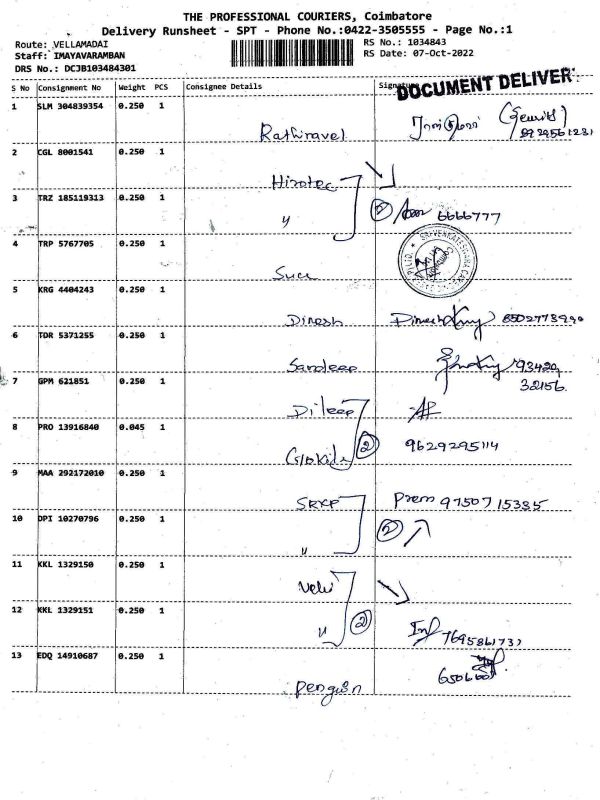 THE PROFESSIONAL COURIERS, Coimbatore
Delivery Runsheet - SPT - Phone No.:0422-3505555 - Page No.:1
Route: VELLAMADAI
RS No.: 1034843
Staff: IMAYAVARAMBAN
RS Date: 07-Oct-2022
DRS No.: DCJB103484301
DOCUMENT DELIVER
S No Consignment No Weight PCS Consignee Details
1 SLM 304839354 0.250 1
Rathiravel
2 CGL 8001541 0.250 1
Hirotec
3 TRZ 185119313 0.250 1
" 2 6666777
4 TRP 5767705 0.250 1
5 KRG 4404243 0.250 1
Dinesh
6 TDR 5371255 0.250 1
Sandeep 93420
32156
7 GPM 621851 0.250 1
Dileep
8 PRO 13916840 0.045 1
2 9629295114
9 MAA 292172010 0.250 1
Prem 97507 15335
10 DPI 10270796 0.250 1
" 2
11 KKL 1329150 0.250 1
12 KKL 1329151 0.250 1
" 2 7695861731
13 EDQ 14910687 0.250 1
Penguin